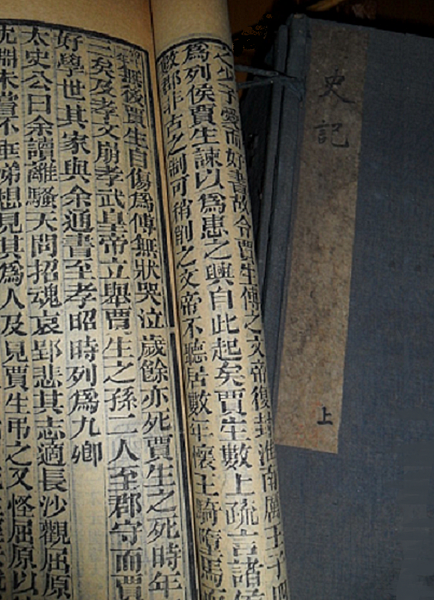 之少子愛而好書故令賈生傅之文帝復封淮南厲王子四
爲列侯賈生諫以爲患之興自此起矣賈生數上疏言諸侯
數郡非古之制可稍削之文帝不聽居數年懷王騎墮馬
無後賈生自傷爲傅無狀哭泣歲餘亦死賈生之死時年
三矣及孝文崩孝武皇帝立舉賈生之孫二人至郡守而賈
好學世其家與余通書至孝昭時列爲九卿
太史公曰余讀離騷天問招魂哀郢悲其志適長沙觀屈原
沈淵未嘗不垂涕想見其爲人及見賈生弔之又怪屈原以
史記
上